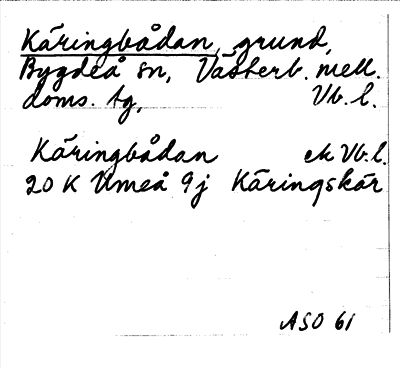 Käringbådan, grund,
Bygdeå sn, Västerb. mell.
doms. tg, Vb. l.
Käringbådan ek Vb. l.
20 K Umeå 9j Käringskär
ASO 61